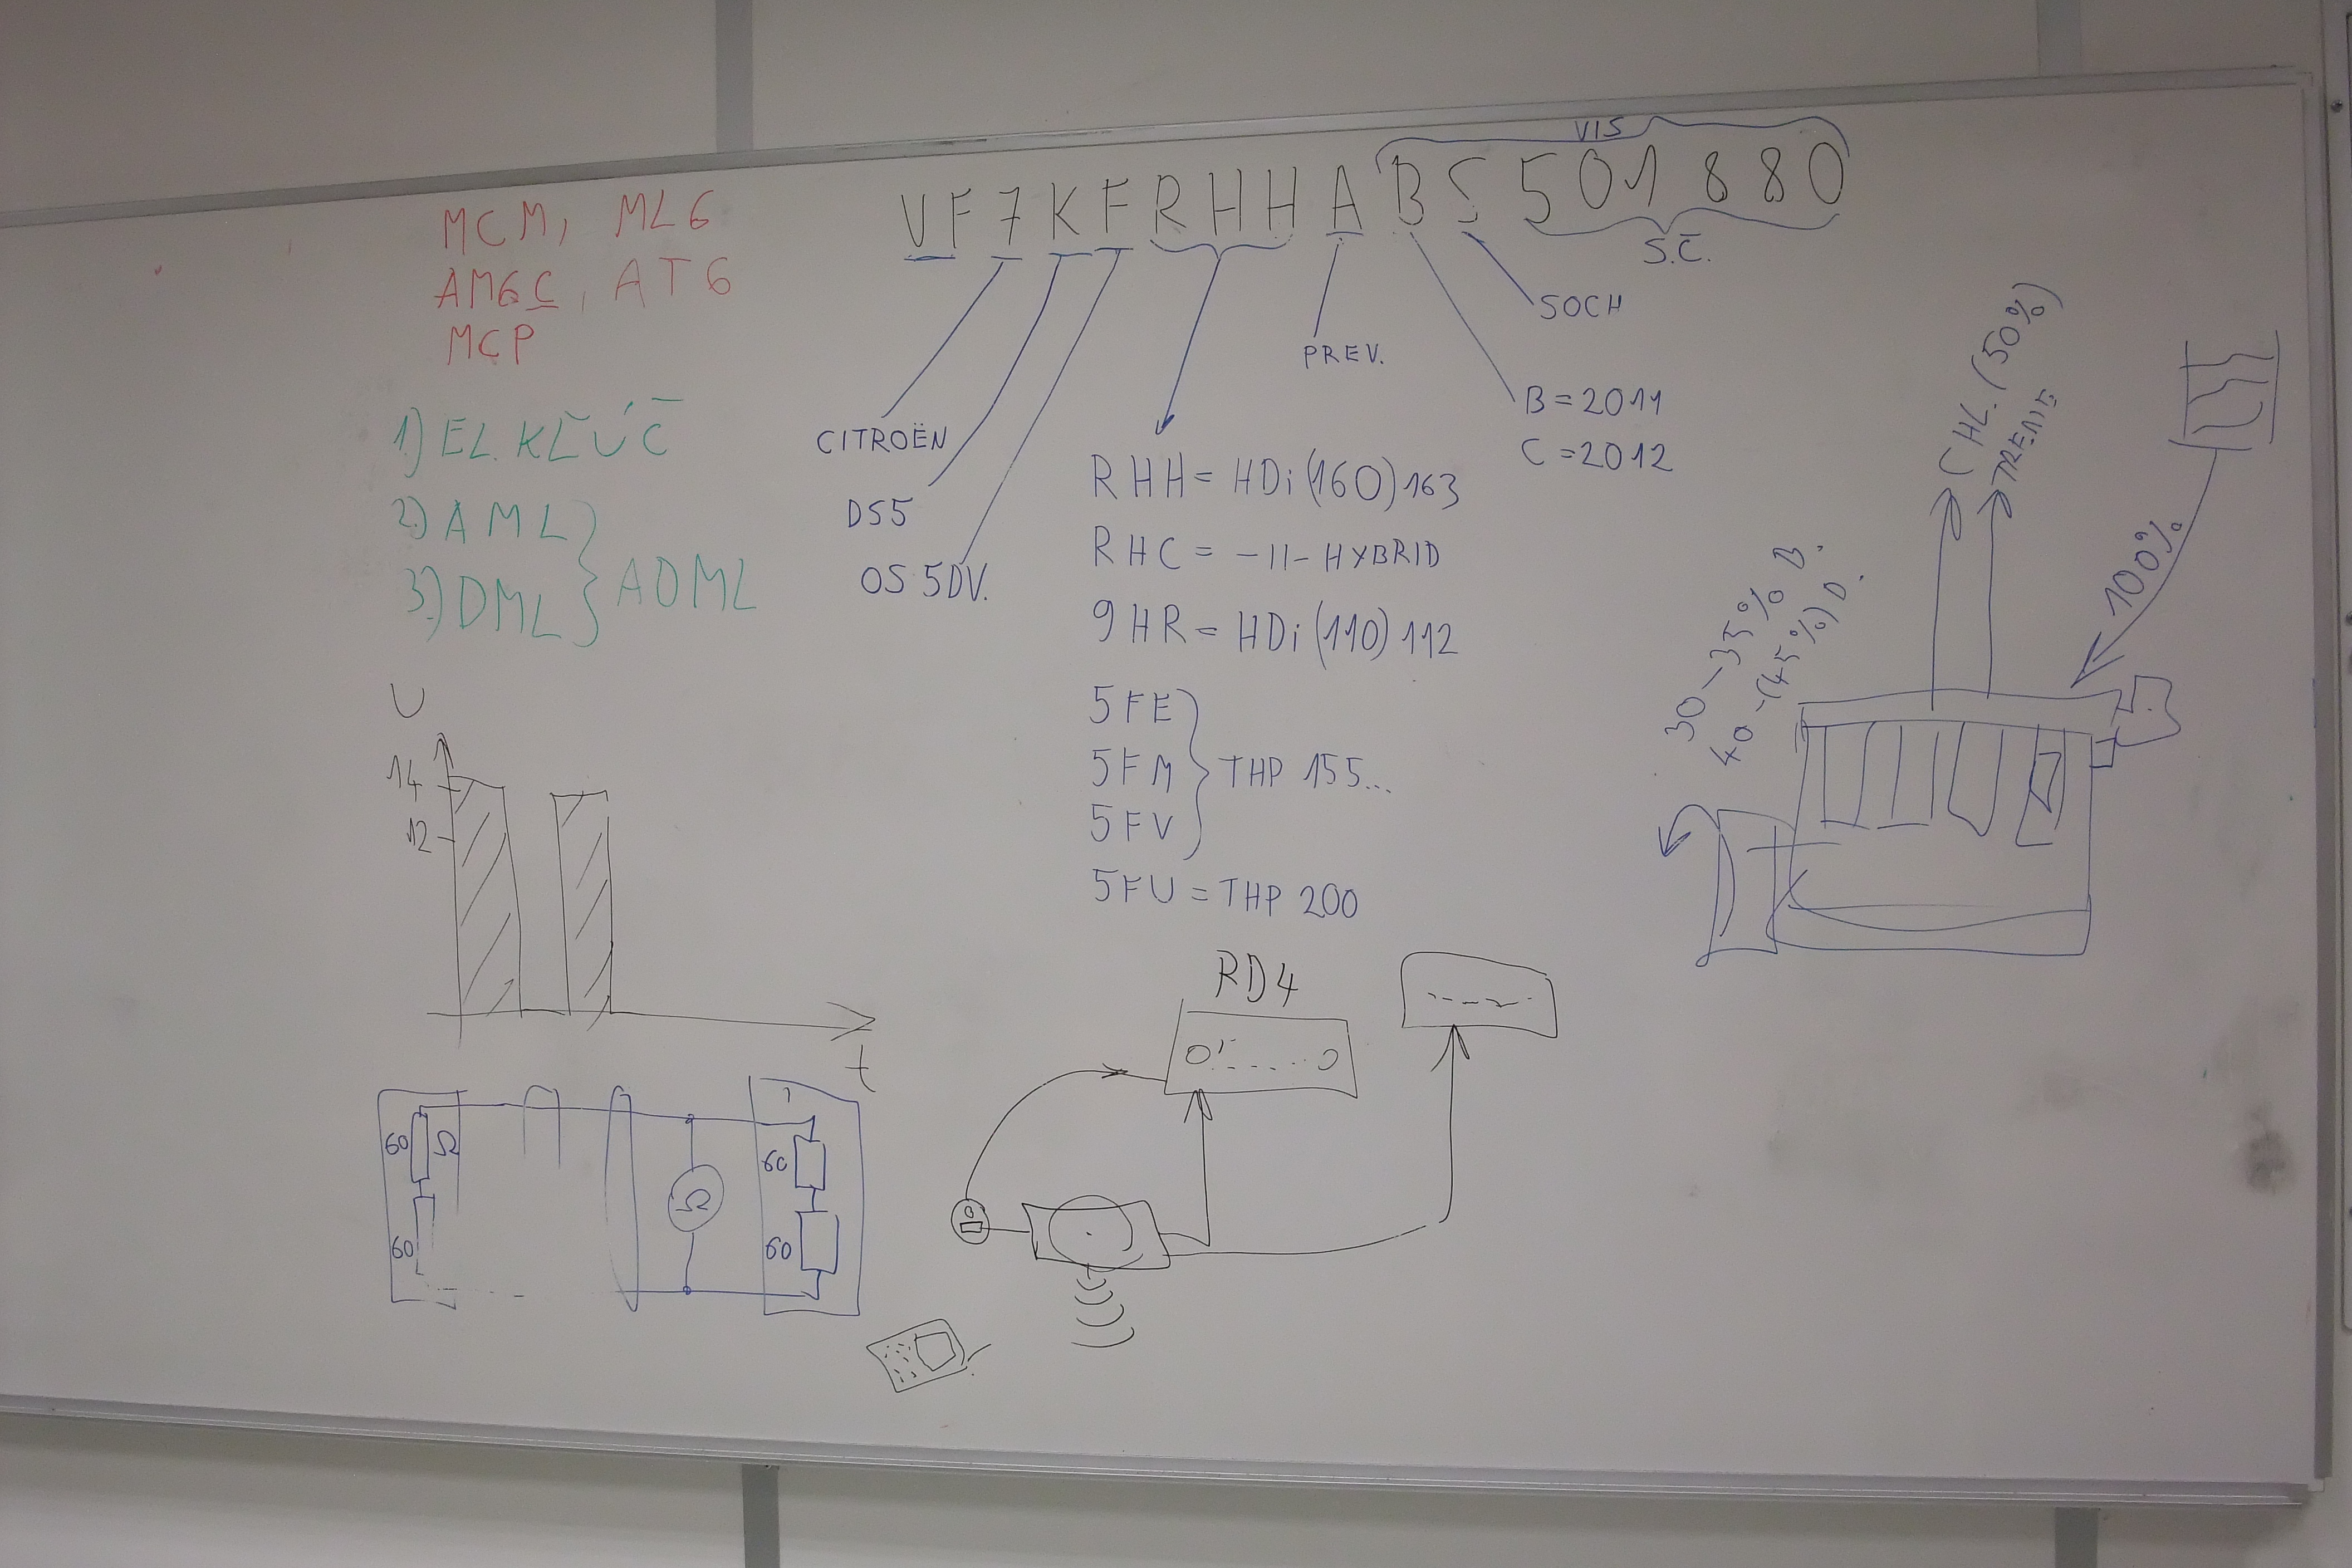 MCM, ML6
AM6C, AT6
MCP
1) EL. KĽÚČ
2) AML
3) DML
ADML
VIS
VF7KFRHHABS501880
S.Č.
SOCH
PREV.
B = 2011
C = 2012
CITROËN
DS5
OS 5DV.
RHH = HDi (160) 163
RHC = -II- HYBRID
9HR = HDi (110) 112
5FE
5FM
5FV
THP 155...
5FU = THP 200
CHL. (50%)
TRENIE
100%
30 - 35% B.
40 - (45%) D.
U
14
12
t
60 Ω
60
Ω
60
60
RD4